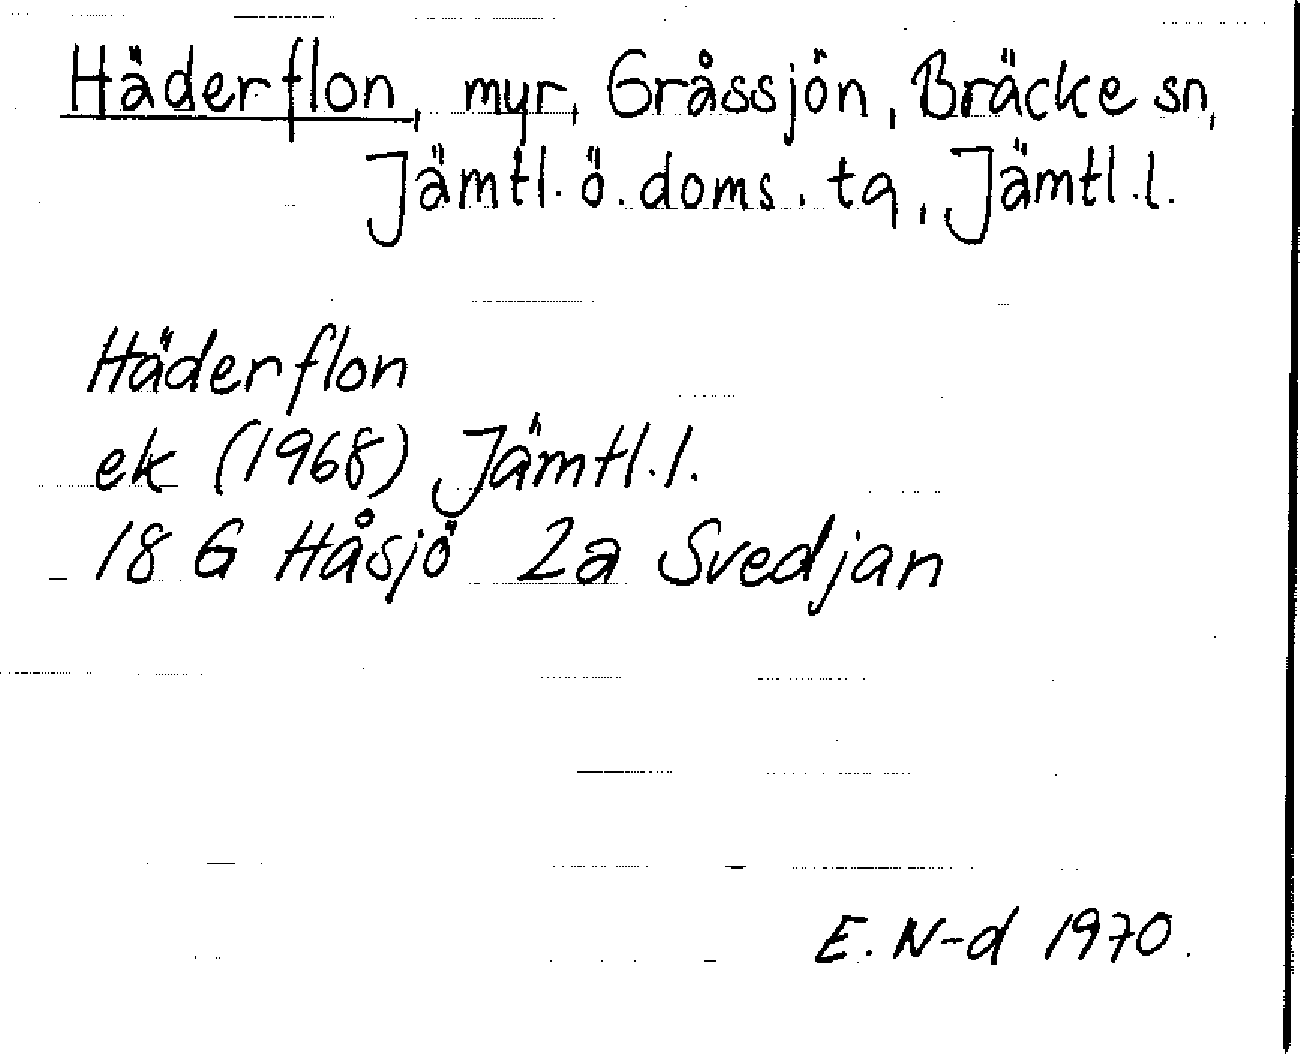 Häderflon, myr, Gråssjön, Bräcke sn,
Jämtl. ö. doms. tq, Jämtl. l.
Häderflon
ek (1968) Jämtl. l.
18 G Håsjö 2a Svedjan
E. N-d 1970.